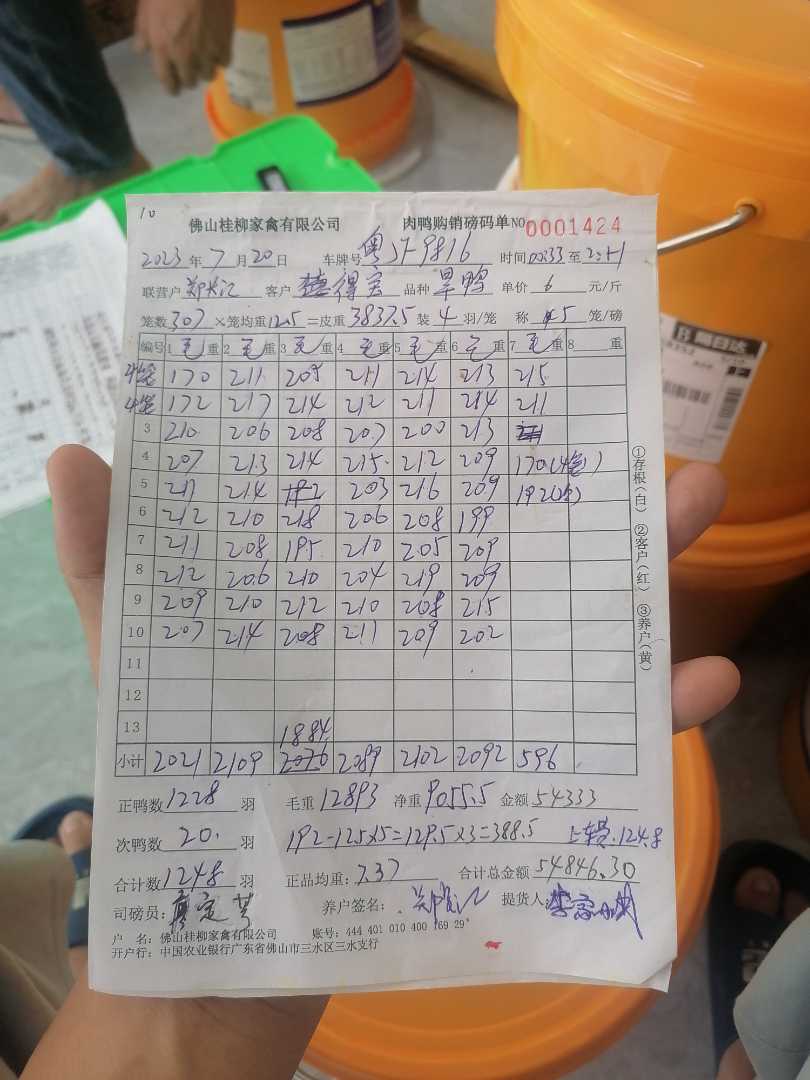 10
佛山桂柳家禽有限公司 肉鸭购销磅码单NO 0001424
2023年7月20日 车牌号 粤J-9816 时间 00:33至2:41
联营户 客户 得宝 品种 旱鸭 单价 6 元/斤
笼数307×笼均重12.5=皮重3837.5装4羽/笼 称5笼/磅
编号 1毛重 2毛重 3毛重 4毛重 5毛重 6毛重 7毛重 8 重
4笼 170 211 205 211 214 213 215
4笼 172 217 214 212 211 214 211
3 210 206 208 207 200 213
4 207 213 214 215 212 209 170(4笼)
5 211 214 203 216 209 192
6 212 210 218 206 208 199
7 211 208 195 210 205 209
8 212 206 210 204 219 209
9 209 210 212 210 208 215
10 207 214 208 211 209 202
11
12
13 1884
小计 2021 2109 2076 2089 2102 2092 596
正鸭数1228羽 毛重12893 净重9055.5 金额54333
次鸭数20.羽 192-12.5×5=129.5×3=388.5 上车费.124.8
合计数1248羽 正品均重:7.37 合计总金额54846.30
司磅员: 养户签名: 提货人:
户 名: 佛山桂柳家禽有限公司 账号: 444 401 010 400 169 29
开户行: 中国农业银行广东省佛山市三水区三水支行
①存根(白) ②客户(红) ③养户(黄)